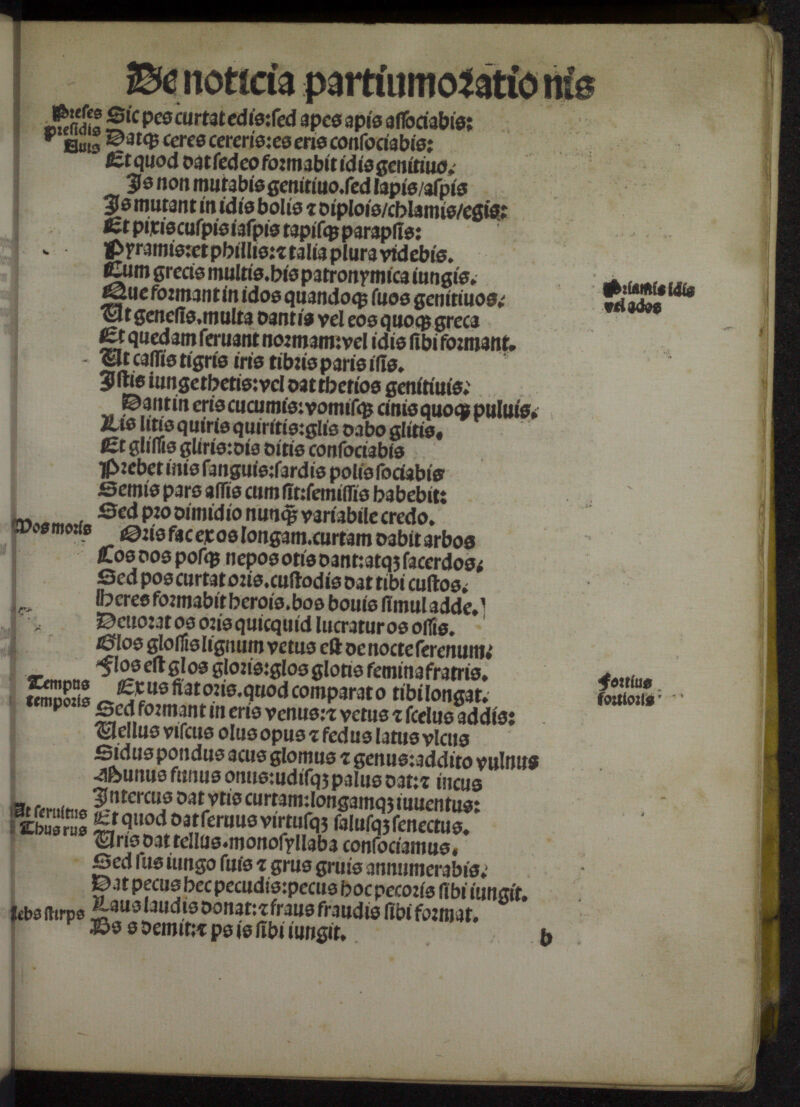 De noticia partiumoratio nis
Prefes Sic pes curtat edis:sed apes apis associabis:
presidis Datqꝫ ceres cereris:es eris consociabis:
Et quod dat sedeo formabit idis genitiuo.
Is non mutabis genitiuo.sed lapis/aspis
Is mutant in idis bolis ⁊ diplois/chlamis/egis:
Et pixis cuspis iaspis tapisqꝫ parapsis:
Pyramis:et phillis:⁊ talia plura videbis.
Cum grecis multis.his patronymica iungis.
Que formant in idos quandoqꝫ suos genitiuos.
Priamis idis
vel ados
Ut genesis.multa dant is vel eos quoqꝫ greca
Et quedam seruant normam:vel idis sibi formant.
Ut cassis tigris iris tibris paris isis.
Istis iunge thetis:vel dat thetios genitiuis.
Dant in eris cucumis:vomisqꝫ cinis quoqꝫ puluis.
Lis litis quiris quiritis:glis dabo glitis.
Et glissis gliris:dis ditis consociabis
Prebet inis sanguis:sardis polis sociabis
Semis pars assis cum sit:semissis habebit:
Sed pro dimidio nunqꝫ variabile credo.
Mos moris Oris fac ex os longam.curtam dabit arbos
Cos dos posqꝫ nepos otis dant:atqꝫ sacerdos.
Sed pos curtat oris.custodis dat tibi custos.
Heres formabit herois.bos bouis simul adde.
Deuorat os oris quicquid lucratur os ossis.
Glos glossis lignum vetus est de nocte serenum.
Flos est glos gloris:glos glotis femina fratris.
Tempus Ex us fiat oris.quod comparat o tibi longat.
fortius
temporis Sed formant in eris venus:⁊ vetus ⁊ scelus addis:
fortioris
Uellus viscus olus opus ⁊ fedus latus vlcus
Sidus pondus acus glomus ⁊ genus:addito vulnus
Munus funus onus:udisqꝫ palus dat:⁊ incus
Intercus dat vtis curtam:longamqꝫ iuuentus:
Ut seruitus Et quod dat seruus virtusqꝫ salusqꝫ senectus.
Thus rus Uris dat tellus.monosyllaba consociamus.
Sed sus iungo suis ⁊ grus gruis annumerabis.
Dat pecus hec pecudis:pecus hoc pecoris sibi iungit.
Laus laudis donat:⁊ fraus fraudis sibi format.
stirps Bs s demit:⁊ ps is sibi iungit.
b